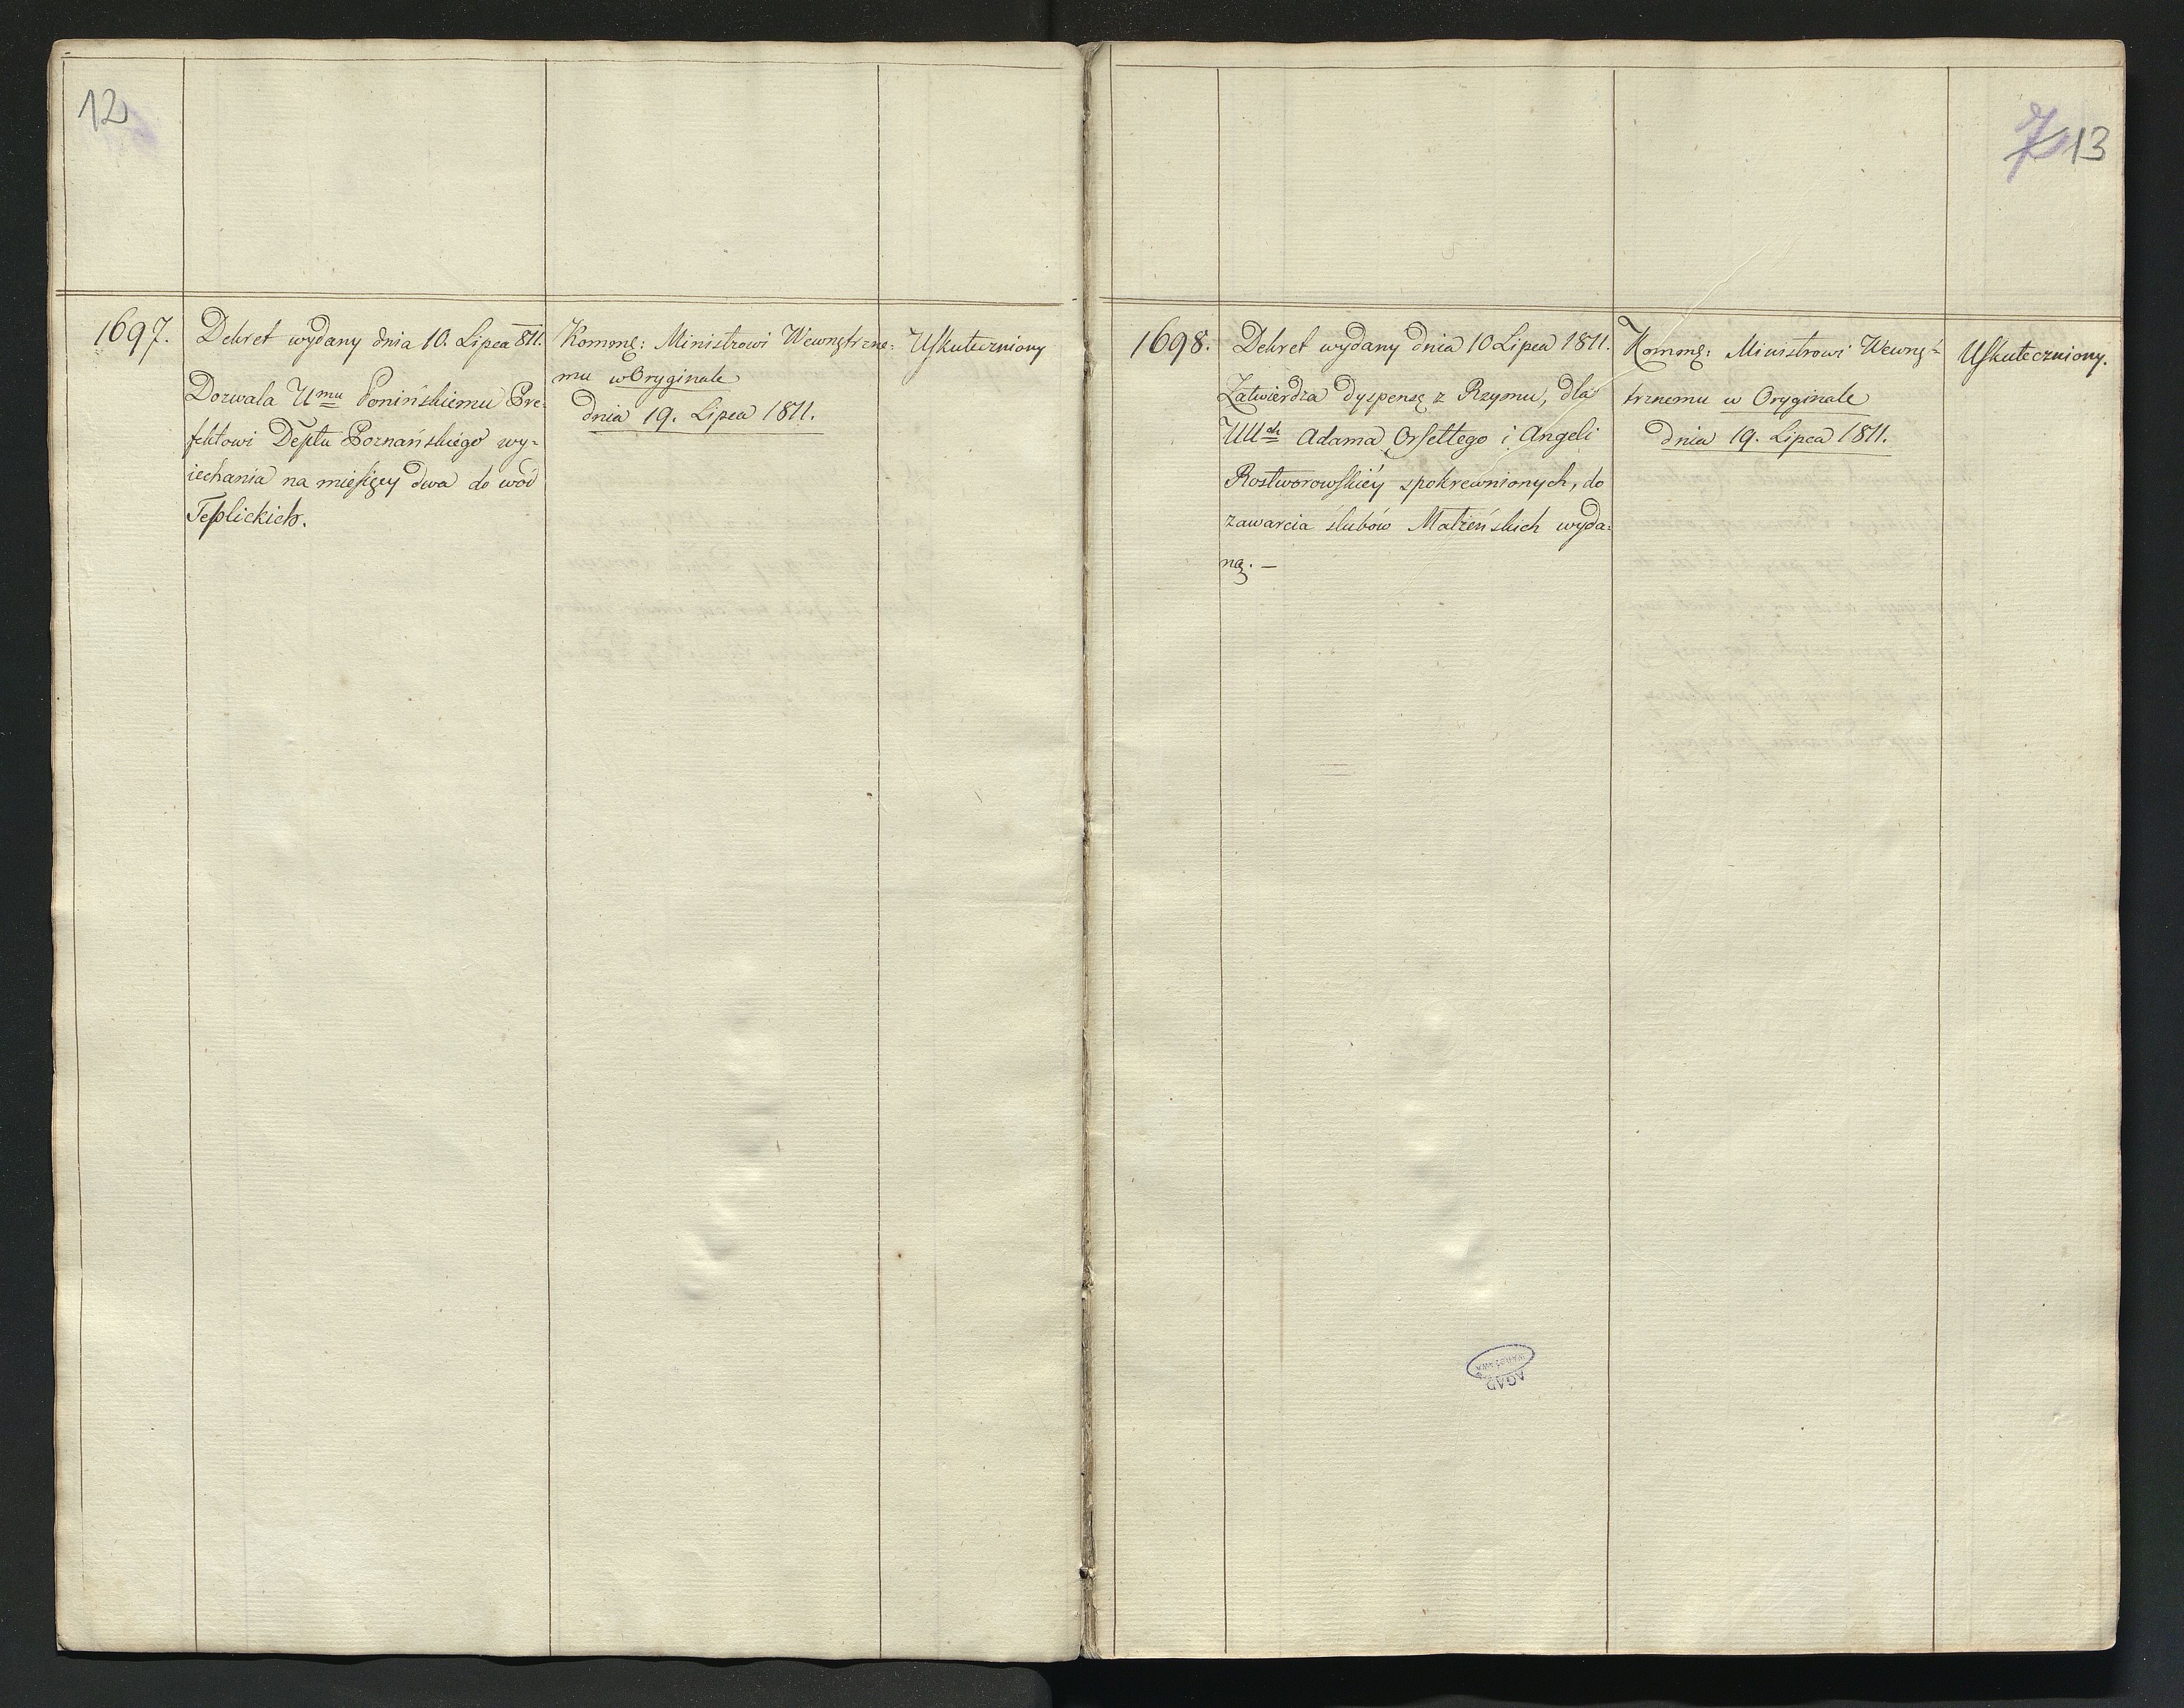 12
1697.
Dekret wydany dnia 10. Lipca 811.
Dozwala Umu Ponińskiemu Pre-
fektowi Deptu Poznańskiego wy-
iechania na mieſięcy dwa do wód
Teplickich.
Kommę: Ministrowi Wewnętrzne-
mu w Oryginale
dnia 19. Lipca 1811.
Uſkuteczniony
7 13
1698.
Dekret wydany dnia 10 Lipca 1811.
Zatwierdza dyspensę z Rzymu, dla
UUch Adama Orſettego i Angeli
Rostworowſkiéy spokrewnionych, do
zawarcia ślubów Małżeńskich wyda-
ną. —
Kommę: Ministrowi Wewnę-
trznemu w Oryginale
dnia 19. Lipca 1811.
Uſkuteczniony.
AGAD
WARSZAWA